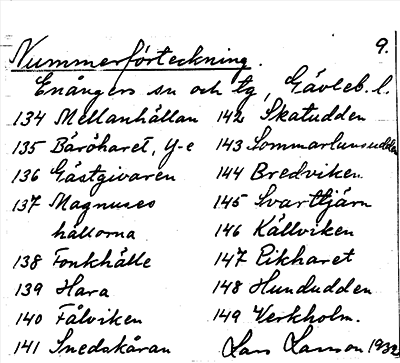 9.
Nummerförteckning.
Enångers sn och tg, Gävleb. l.
134 Mellanhällan
135 Båröharet, Y-e
136 Gästgivaren
137 Magnuses
hällorna
138 Fonkhälle
139 Hara
140 Fålviken
141 Snedskåran
142 Skatudden
143 Sommarlunsudden
144 Bredviken.
145 Svarttjärn
146 Källviken
147 Eikharet
148 Hundudden
149 Verkholm.
Lars 1932